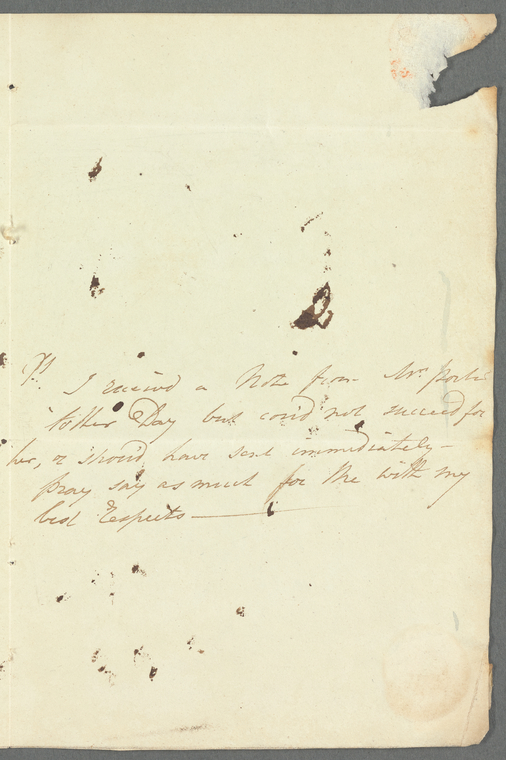 Ps. I received a Note from Mrs. Porter
tother Day but could not succeed for
her, or should have sent immediately—
pray say as much for me with my
best Respects —